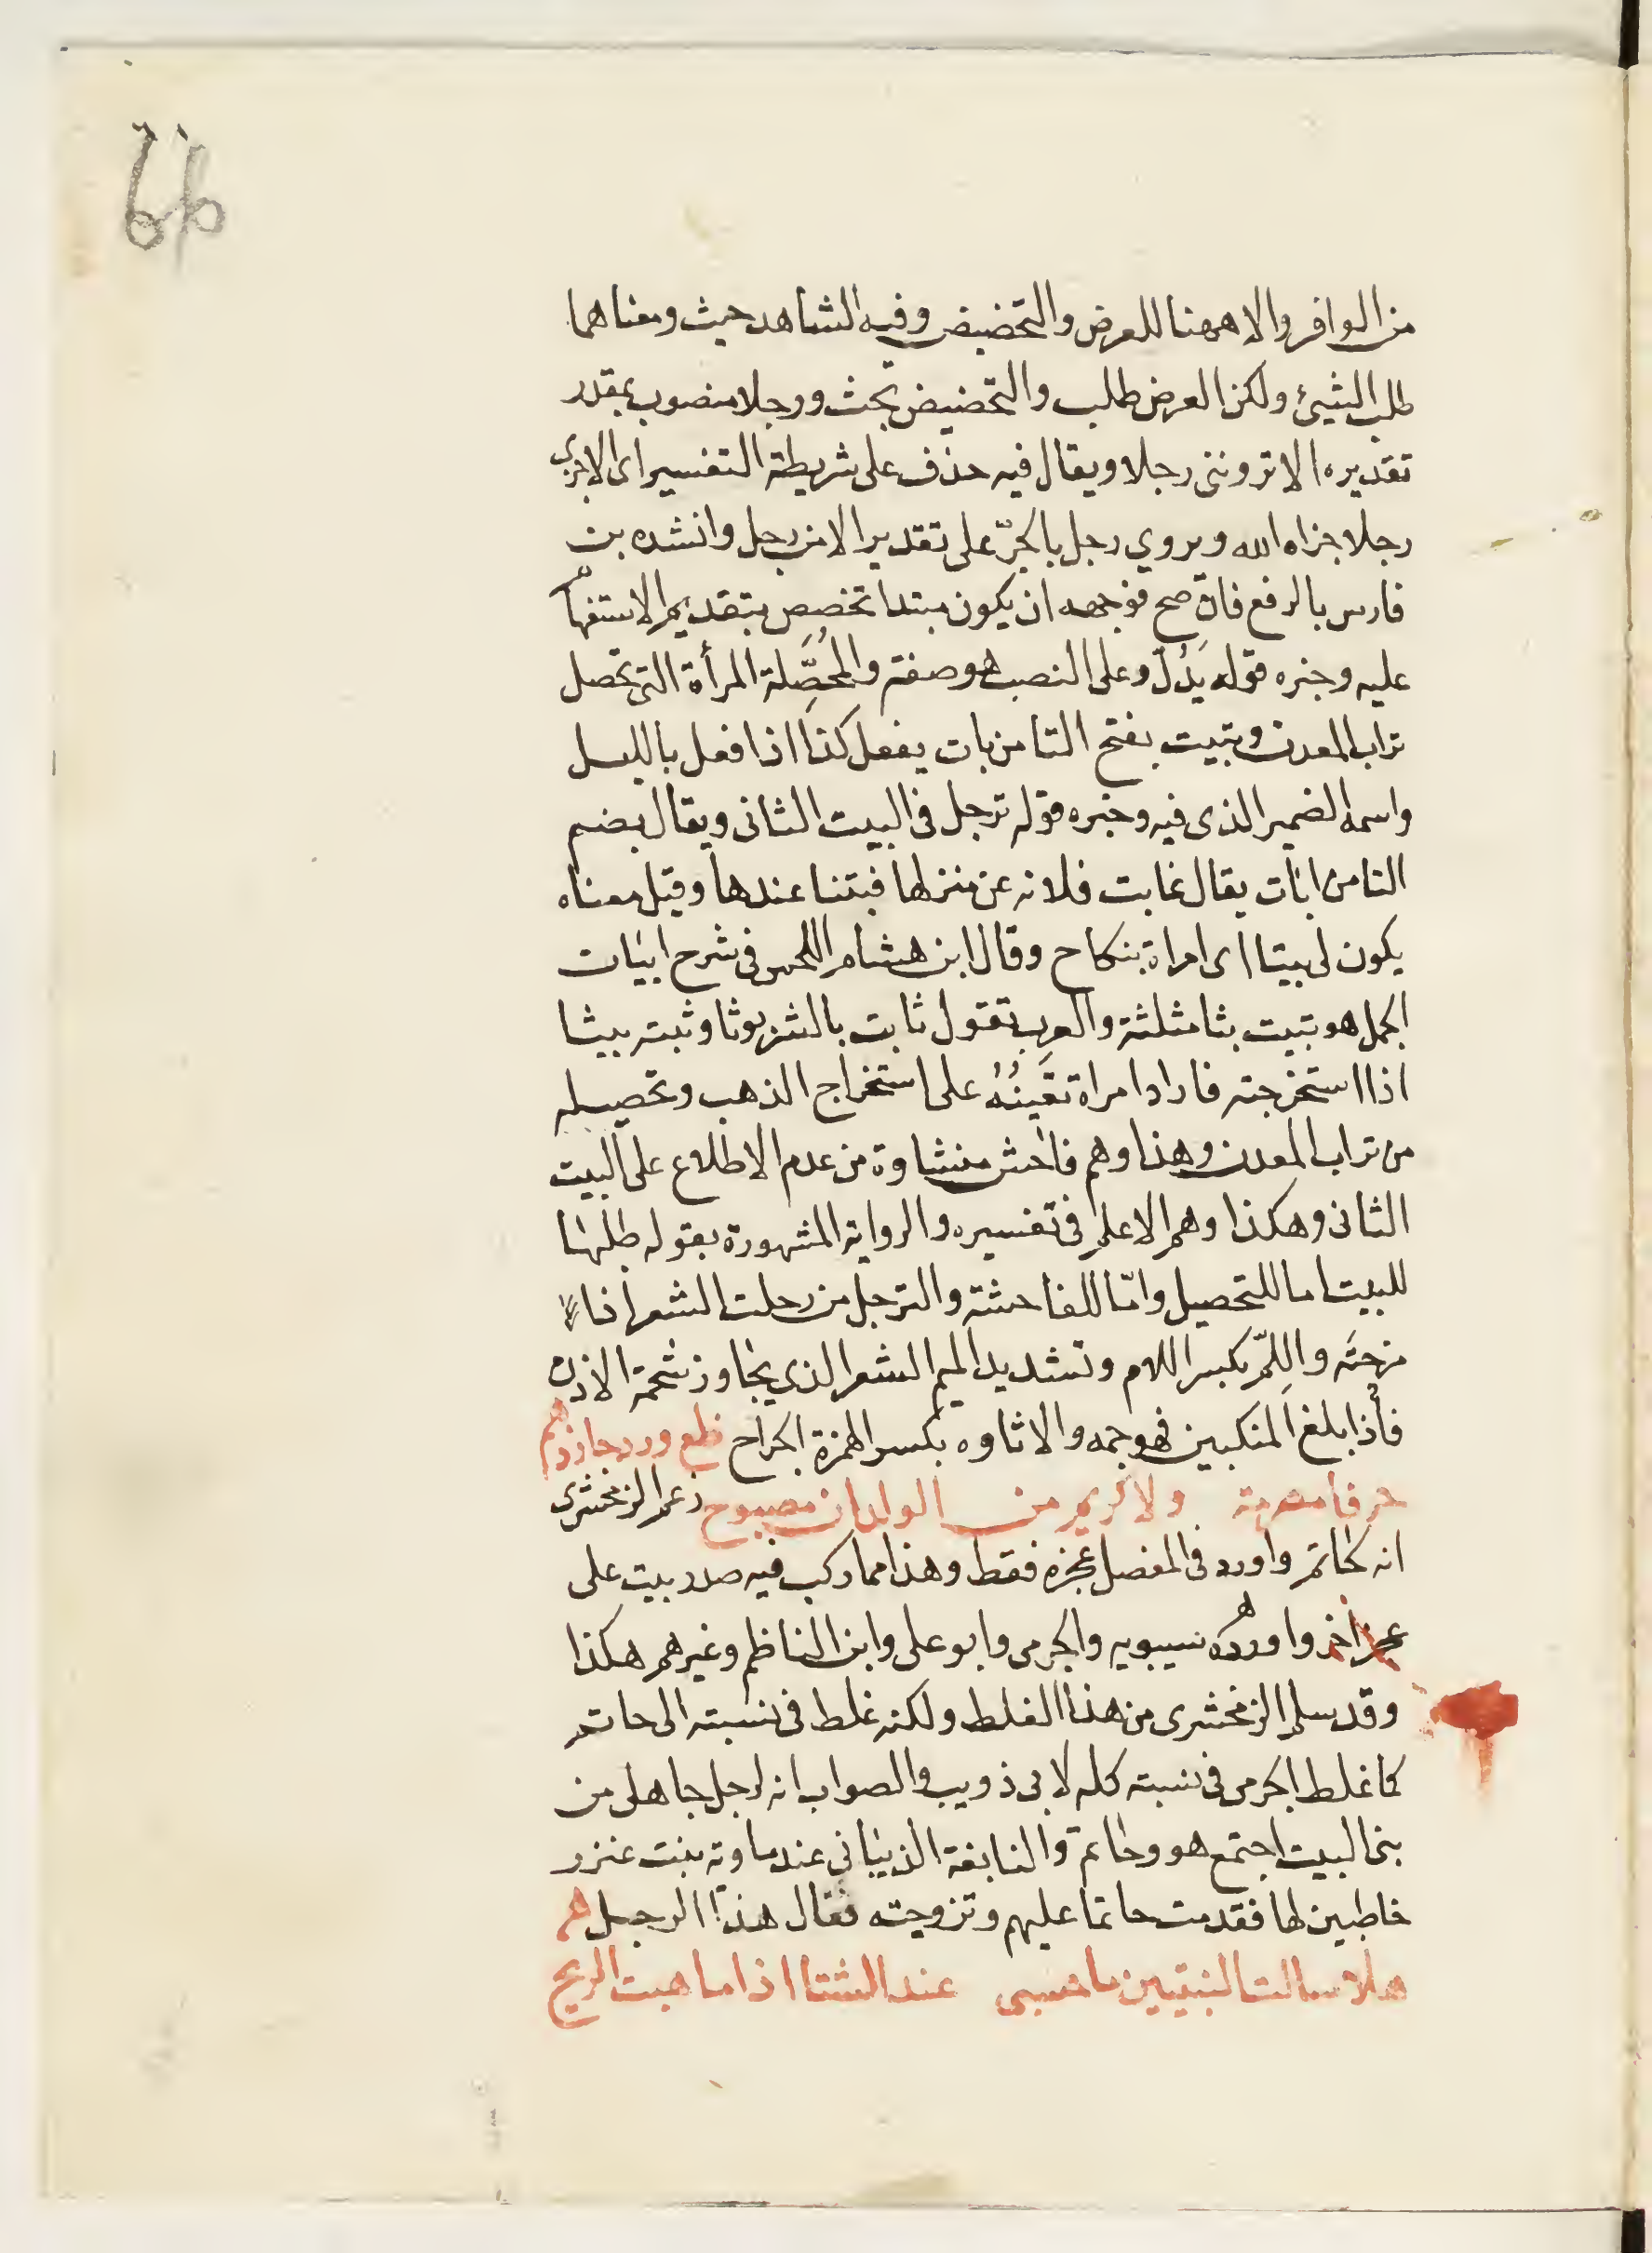 66
من الوافر والا ههنا للعرض والتحضيض وفيه الشاهد حيث ومعناهما
طلب الشيئ ولكن العرض طلب والتحضيض بحث ورجلا منصوب بمقدر
تقديره الا ترونني رجلا ويقال فيه حذف على شريطة التفسير اى الا جزى
رجلا جزاه الله ويروي رجل بالجرّ على تقدير الا من رجل وانشده بن
فارس بالرفع فان صح فوجهه ان يكون مبتدا تخصص بتقديم الاستفهام
عليه وخبره قوله يَدُلّ وعلى النصب هو صفة والمُحَصِّلة المرأة التى تحصل
تراب المعدن وتبيت بفتح التا من بات يفعل كذا اذا فعل بالليل
واسمه الضمير الذى فيه وخبره قوله ترجل فى البيت الثانى ويقال بضم
التا من ابات يقال غابت فلانه عن منزلها فبتنا عندها وقيل معناه
يكون لى بيتا اى امراة بنكاح وقال ابن هشام اللخمى فى شرح ابيات
الجمل هو تبيت بثا مثلثة والعرب تقول ثابت بالشئ بوثا وثبته بيثا
اذا استخرجته فاراد امراة تعَينُهُ على استخراج الذهب وتحصيله
من تراب المعدن وهذا وهم فاحش منشاوة من عدم الاطلاع على البيت
الثانى وهكذا وهم الاعلم فى تفسيره والرواية المشهورة بقوله طلبها
للبيت اما للتحصيل وامّا للفاحشة والترجل من رحلت الشعر اذا
مزحته واللِمّ بكسر اللام وتشديد الميم الشعر الذى يجاوز شحمة الاذن
فأذا بلغ المنكبين فهو جمه والاثاوه بكسر الهمزة الخراج ظع ورد جازرهم
حرفا مصرمة ولا كريم من الولدان مصبوح زعم الزمخشرى
انه لحاتم واورد فى المفصل عجزه فقط وهذا مما ركب فيه صدر بيت على
عجز اخر واورده سيبويه والجرمى وابو على وابن الناظم وغيرهم هكذا
وقد سلم الزمخشرى من هذا الغلط ولكنه غلط فى نسبته الى حاتم
كما غلط الجرمى فى نسبته كله لابى ذويب والصواب انه لرجل جاهلى من
بنى البيت اجتمع هو وحاتم والنابغة الذبيانى عند ماوية بنت عنزر
خاطبين لها فقدمت حاتما عليهم وتزوجته فقال هذا الرجل
هلا سالت النبتيين ما حسبى عند الشتا اذا ما هبت الريح